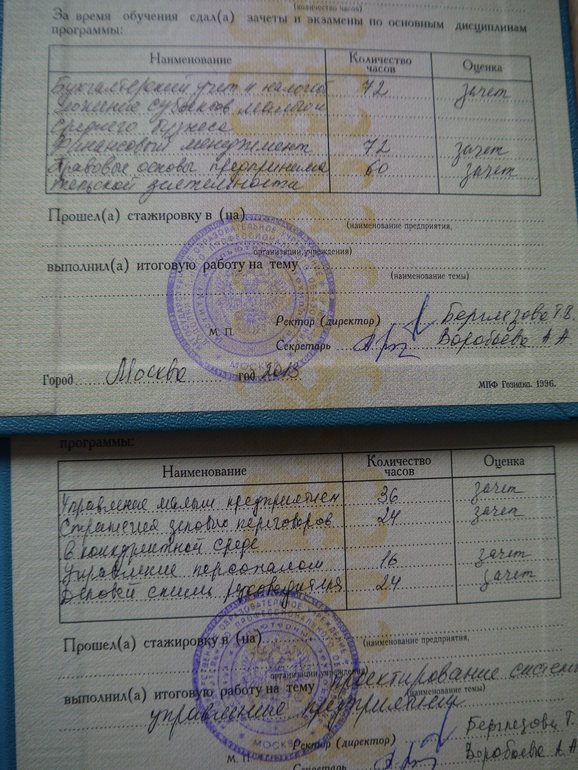 (количество часов)
За время обучения сдал(а) зачеты и экзамены по основным дисциплинам
программы:
Наименование Количество часов Оценка
Бухгалтерский учет и налогооб 72 зачет
ложение субъектов малого и
среднего бизнеса
Финансовый менеджмент 72 зачет
Правовые основы предпринима 60 зачет
тельской деятельности
Прошел(а) стажировку в (на)
(наименование предприятия,
организации, учреждения)
выполнил(а) итоговую работу на тему
(наименование темы)
М. П.
Ректор (директор)
Секретарь Воробьева А.А.
Город Москва год 2013
МПФ Гознака. 1996.
МОСКВА
программы:
Наименование Количество часов Оценка
Управление малым предприятием 36 зачет
Стратегия деловых переговоров 24 зачет
в конкурентной среде
Управление персоналом 16 зачет
Деловой стиль руководителя 24 зачет
Прошел(а) стажировку в (на)
(наименование предприятия,
организации, учреждения)
выполнил(а) итоговую работу на тему проектирование систем
(наименование темы)
управление предприятием
Ректор (директор)
М. П.
Секретарь Воробьева А.А.
МОСКВА